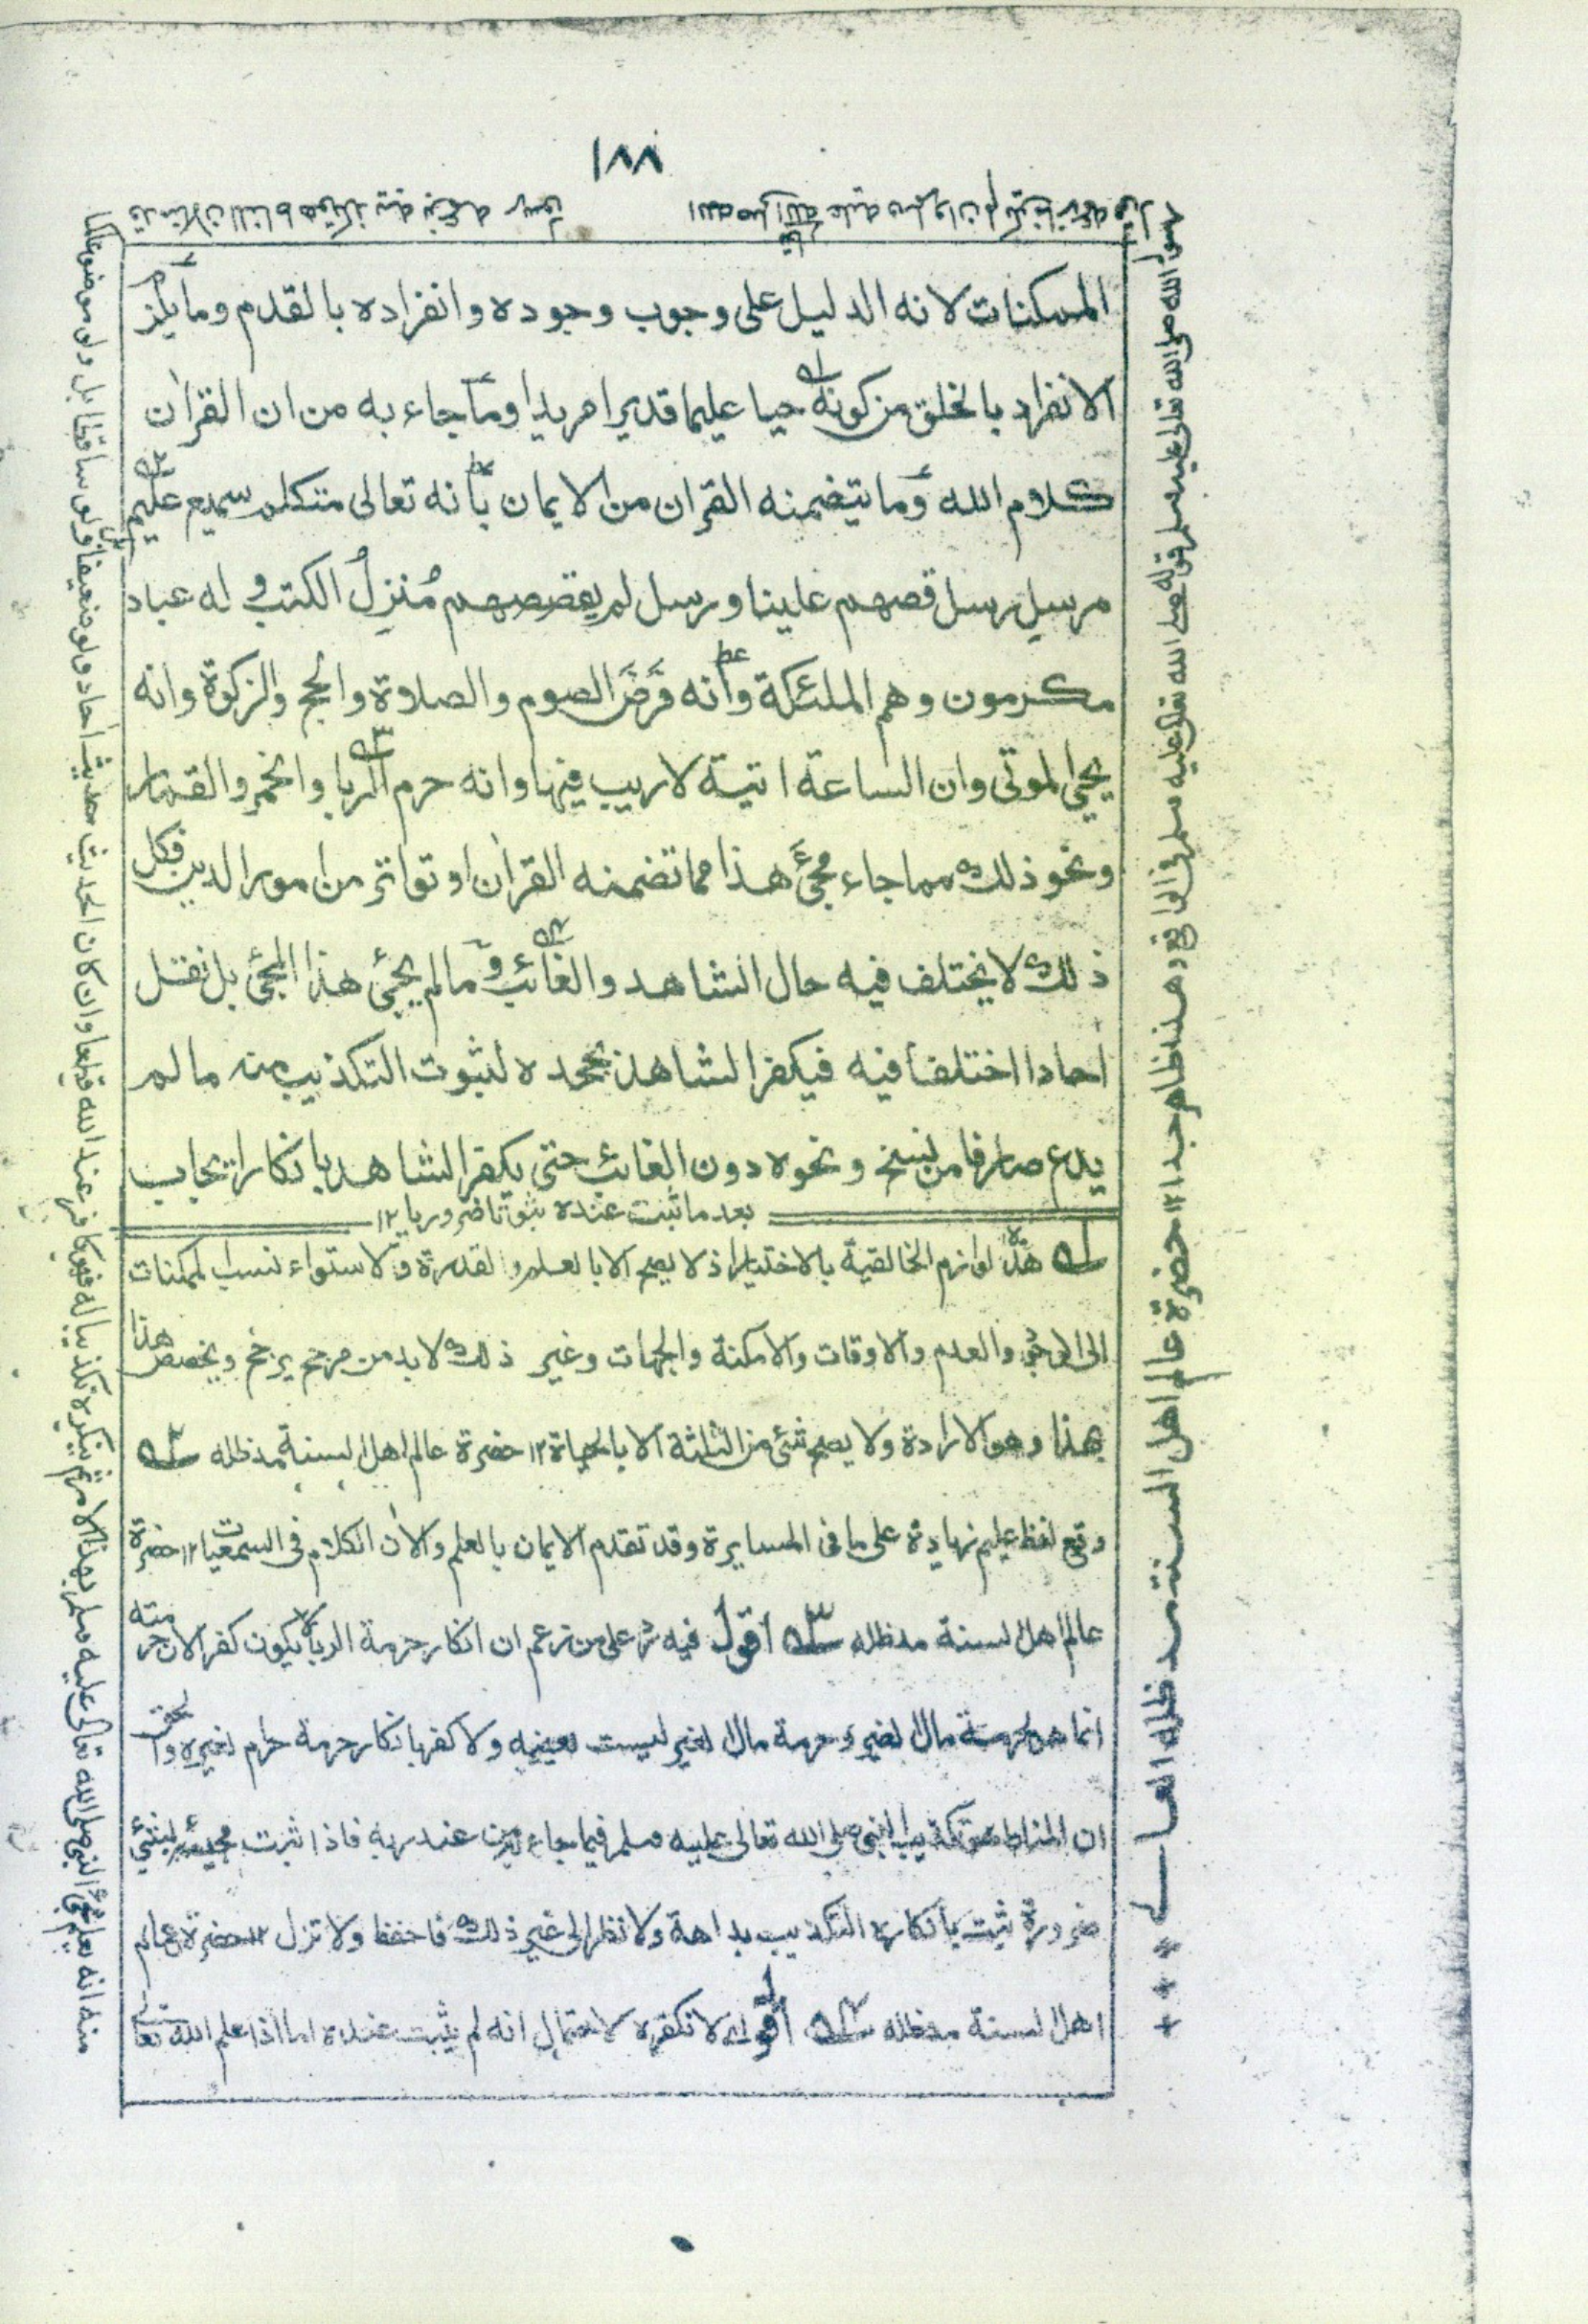 ١٨٨
الممكنات لانه الدليل على وجوب وجوده وانفراده بالقدم وما يلزم
الانفراد بالخلق من كونه حيا عليما قديرا مريدا وما جاء به من ان القراٰن
كلام الله وما يتضمنه القراٰن من الايمان بانه تعالى متكلم سميع عليم
مرسل رسل قصهم علينا ورسل لم يقصصهم مُنزِلُ الكتب و له عباد
مكرمون وهم الملئكة وانه فَرَضَ الصوم والصلاوة والحج والزكوة وانه
يحيى الموتى وان الساعة اتية لا ريب فيها وانه حرم الربا والخمر والقمار
ونحو ذلك مما جاء مجئ هذا مما تضمنه القراٰن او تواتر من امور الدين فكل
ذلك لا يختلف فيه حال الشاهد والغائب و مالم يجئ هذا المجئ بل نقل
احادا اختلفا فيه فيكفر الشاهد بجحده لثبوت التكذيب منه مالم
يدع صارفا من نسخ ونحوه دون الغائب حتى يكفر الشاهد بانكار ايجاب
بعد ما ثبت عنده ثبوتا ضروريا ١٢
١ه هذا لوازم الخالقية بالاختيار اذ لا يصح الا بالعلم والقدرة ولاستواء نسب الممكنات
الى الوجود والعدم والاوقات والامكنة والجهات وغير ذلك لابد من مرجح يرجح ويخصص هذا
بهذا وهو الارادة ولا يصح شئ من الثلثة الا بالحياة ١٢ حضرة عالم اهل السنة مدظله ٢ه
وقع لفظ عليم زيادة على ما فى المسايرة وقد تقدم الايمان بالعلم والاٰن الكلام فى السمعيات ١٢ حضرة
عالم اهل السنة مدظله ٣ه اقول فيه رد على من زعم ان انكار حرمة الربا لا يكون كفرا لان حرمته
انما هى لحرمة مال الغير وحرمة مال الغير ليست لعينه ولا كفر بانكار حرمة حرام لغيره والحق
ان المناط هو تكذيب النبى صلى الله تعالى عليه وسلم فيما جاء به من عند ربه فاذا ثبت مجيئه بشئ
ضرورة ثبت بانكاره التكذيب بداهة ولا نظر الى غير ذلك فاحفظ ولا تزل ١٢ حضرة عالم
اهل السنة مدظله ٤ه اقول لا نكفره لاحتمال انه لم يثبت عنده اما اذا علم الله تعالى
منه انه يعلم مجئ النبى صلى الله تعالى عليه وسلم بهذا الامر ثم ينكره تكذيبا له فهو كافر عند الله قطعا وان كان الحديث حديث احاد ولو ضعيفا ولو ساقطا بل ولو موضوعا
رسول الله صلى الله تعالى عليه وسلم قوله صلى الله تعالى عليه وسلم فى الواقع وهذا ظاهر جدا ١٢ حضرة عالم اهل السنة مد ظله العالى